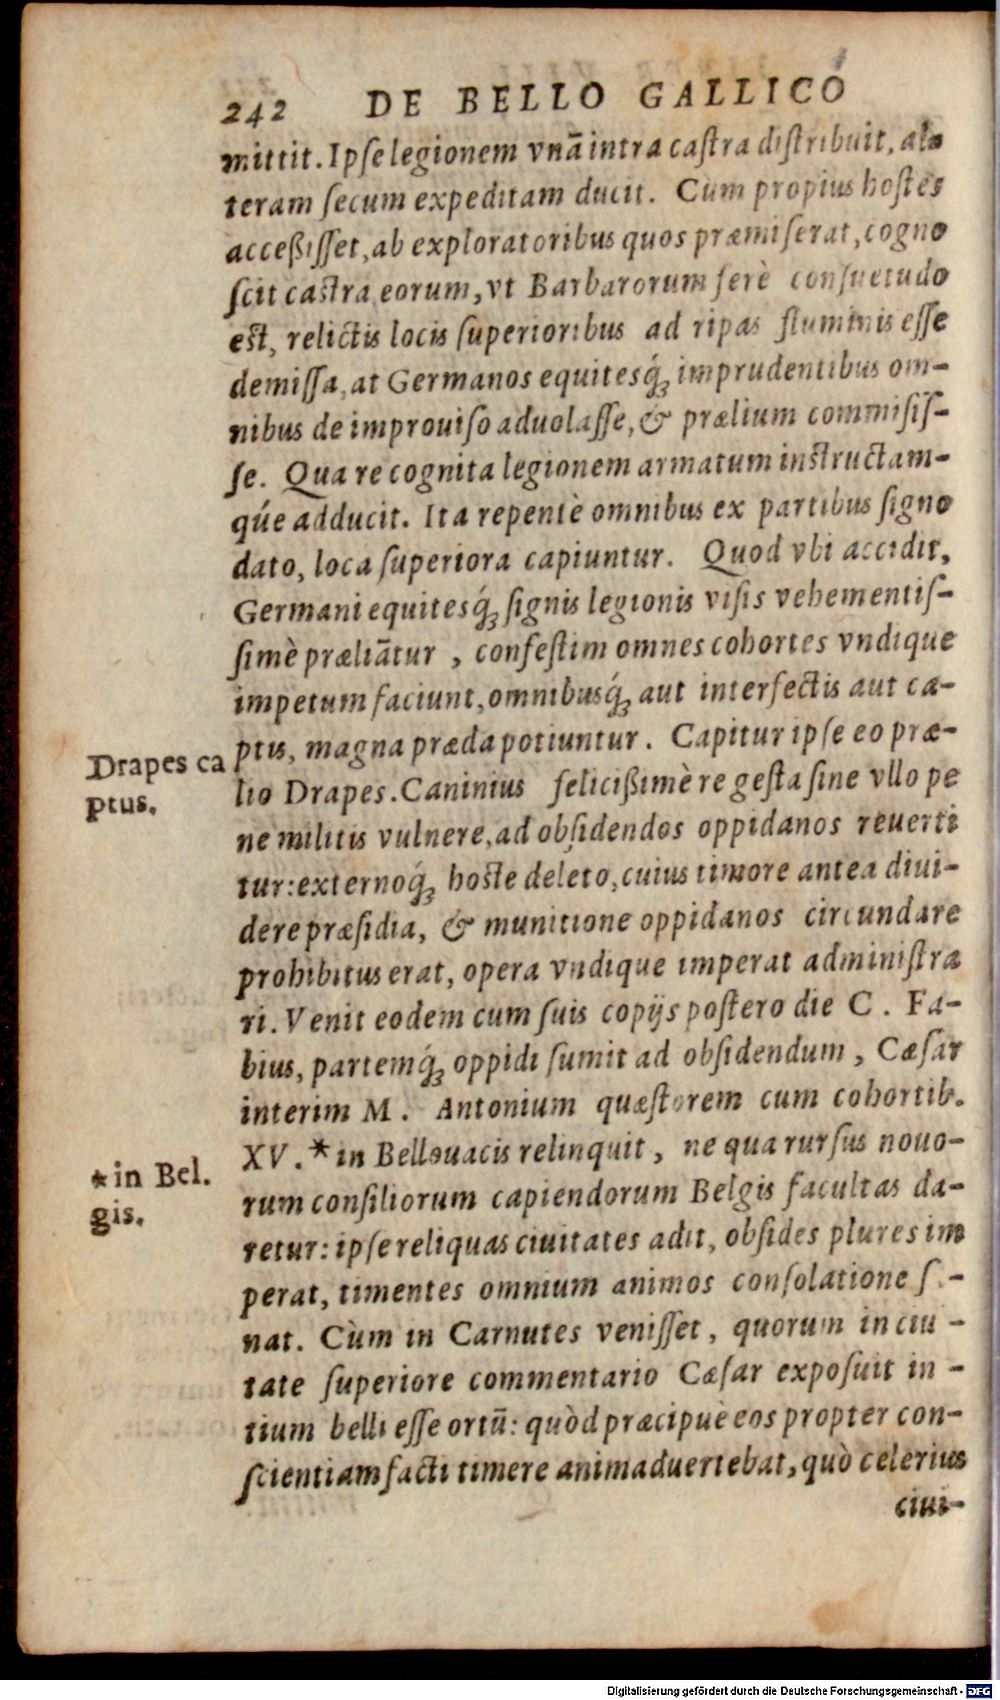 242 DE BELLO GALLICO
mittit. Ipse legionem vnā intra castra distribuit, al-
teram secum expeditam ducit. Cùm propius hostes
acceßisset, ab exploratoribus quos præmiserat, cogno
scit castra eorum, vt Barbarorum ferè consuetudo
est, relictis locis superioribus ad ripas fluminis esse
demissa, at Germanos equitesq́; imprudentibus om-
nibus de improuiso aduolasse, & prælium commisis-
se. Qua re cognita legionem armatum instructam-
q́ue adducit. Ita repentè omnibus ex partibus signo
dato, loca superiora capiuntur. Quod vbi accidit,
Germani equitesq́; signis legionis visis vehementis-
simè præliātur, confestim omnes cohortes vndique
impetum faciunt, omnibusq́; aut interfectis aut ca-
ptis, magna præda potiuntur. Capitur ipse eo præ-
Drapes ca
ptus.
lio Drapes. Caninius felicißimè re gesta sine vllo pe
ne militis vulnere, ad obsidendos oppidanos reuerti
tur: externoq́; hoste deleto, cuius timore antea diui-
dere præsidia, & munitione oppidanos circundare
prohibitus erat, opera vndique imperat administra
ri. Venit eodem cum suis copijs postero die C. Fa-
bius, partemq́; oppidi sumit ad obsidendum, Cæsar
interim M. Antonium quæstorem cum cohortib.
XV. * in Bellouacis relinquit, ne qua rursus nouo-
* in Bel.
gis.
rum consiliorum capiendorum Belgis facultas da-
retur: ipse reliquas ciuitates adit, obsides plures im
perat, timentes omnium animos consolatione
nat. Cùm in Carnutes venisset, quorum in ciui-
tate superiore commentario Cæsar exposuit in-
tium belli esse ortū: quòd præcipuè eos propter con-
scientiam facti timere animaduertebat, quò celerius
ciui-
Digitalisierung gefördert durch die Deutsche Forschungsgemeinschaft - DFG